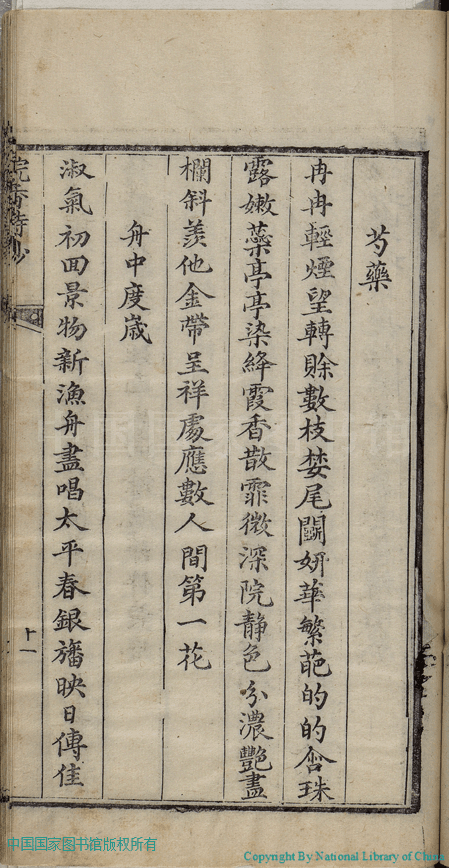 芍藥
冉冉輕煙望轉賒數枝婪尾鬭妍華繁葩的的含珠
露嫩蘂亭亭染絳霞香散霏微深院静色分濃艷畫
欄斜羨他金帶呈祥處應數人間第一花
舟中度歲
淑氣初回景物新漁舟盡唱太平春銀旛映日傳佳
院香詩鈔
十一
中国国家图书馆版权所有
Copyright By National Library of China